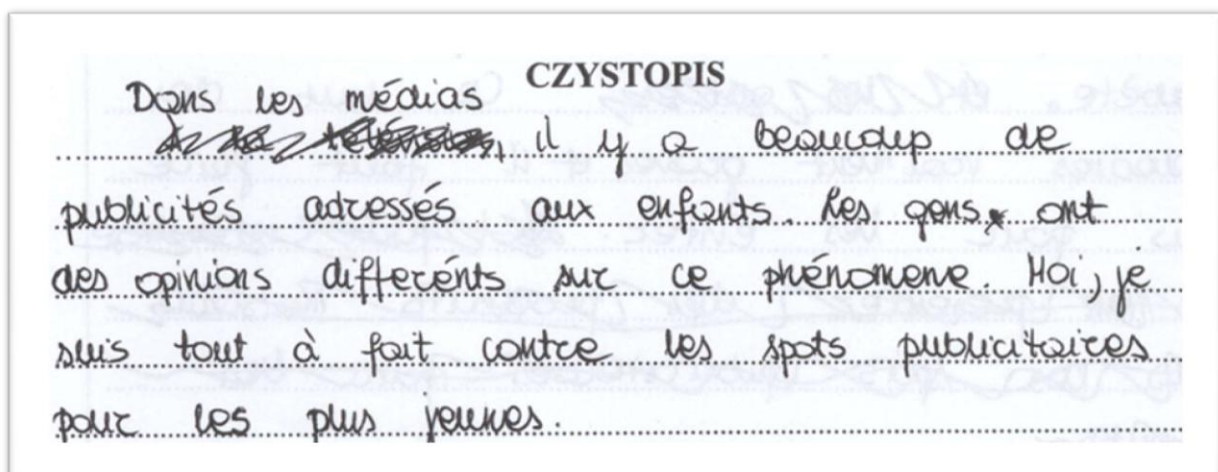 CZYSTOPIS
Dans les médias
, il y a beaucoup de
publicités adressés aux enfants. Les gens ont
des opinions differénts sur ce phénomene. Moi, je
suis tout à fait contre les spots publicitaires
pour les plus jeunes.